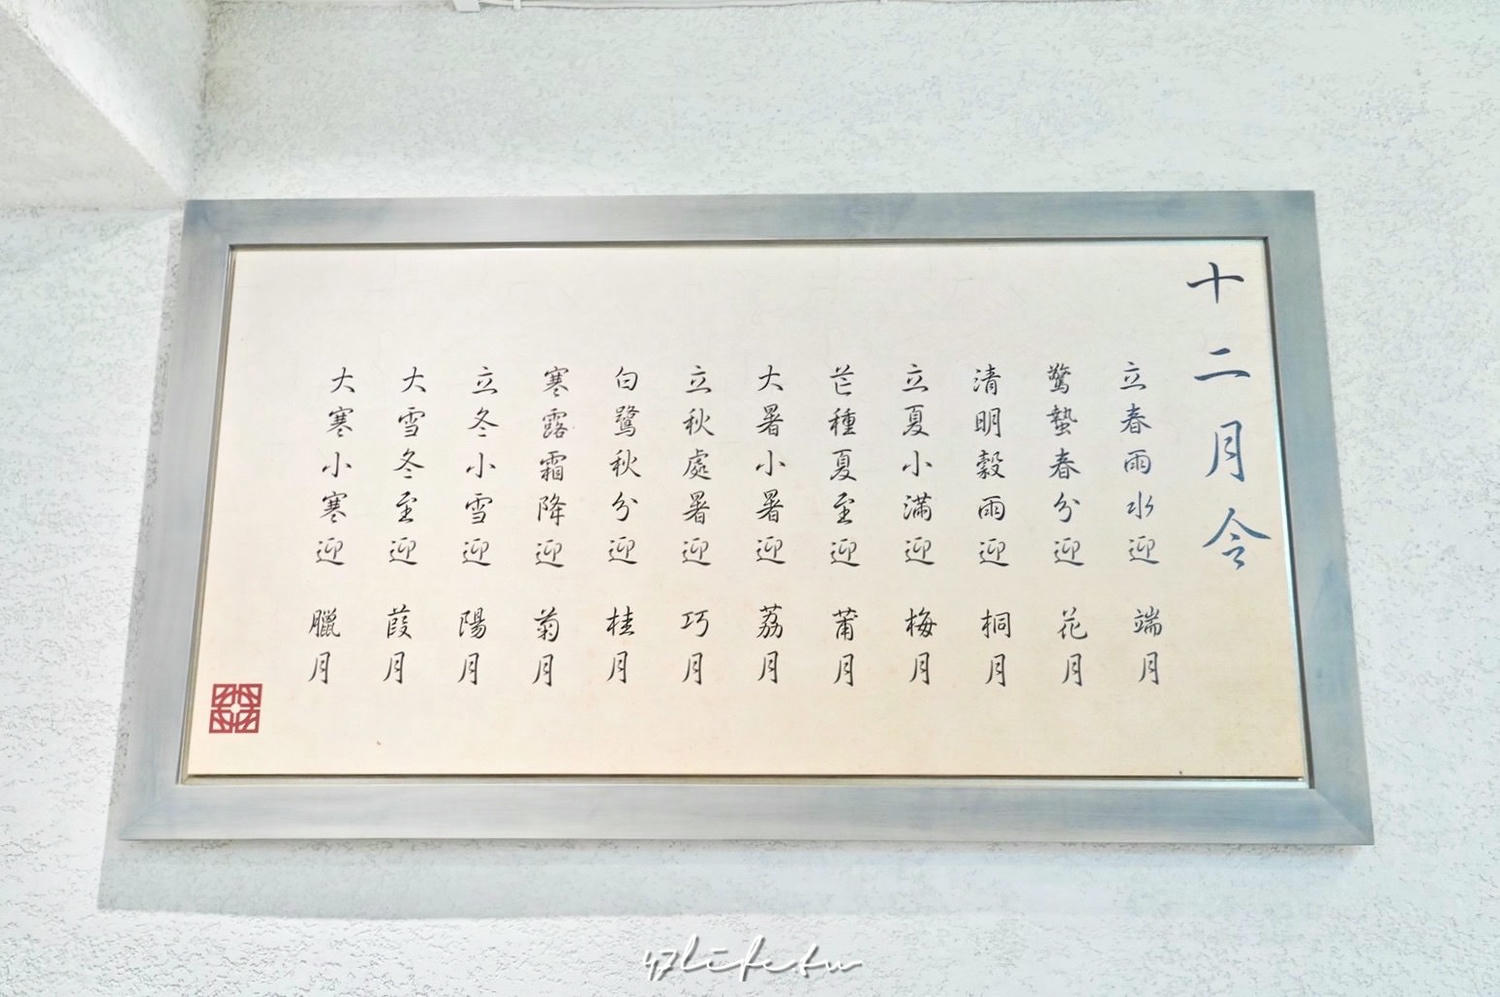 十二月令
立春雨水迎 端月
驚蟄春分迎 花月
清明穀雨迎 桐月
立夏小滿迎 梅月
芒種夏至迎 莆月
大暑小暑迎 荔月
立秋處暑迎 巧月
白鷺秋分迎 桂月
寒露霜降迎 菊月
立冬小雪迎 陽月
大雪冬至迎 葭月
大寒小寒迎 臘月
47lifetw